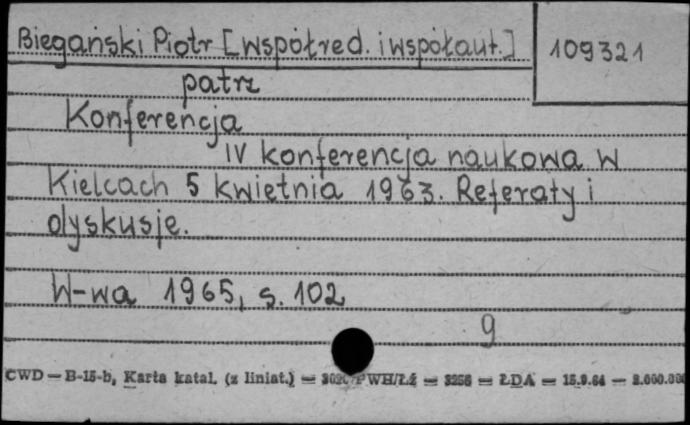 Biegański Piotr [współred. i współaut.]
109321
patrz
Konferencja
IV konferencja naukowa w
Kielcach 5 kwietnia 1963. Referaty i
dyskusje.
W-wa 1965, s. 102
g
CWD — B-15-b, Karta katal. (z liniat.) — PWH/Łź — 3256 — ŁDA — 15.9.64 — 2.000.000